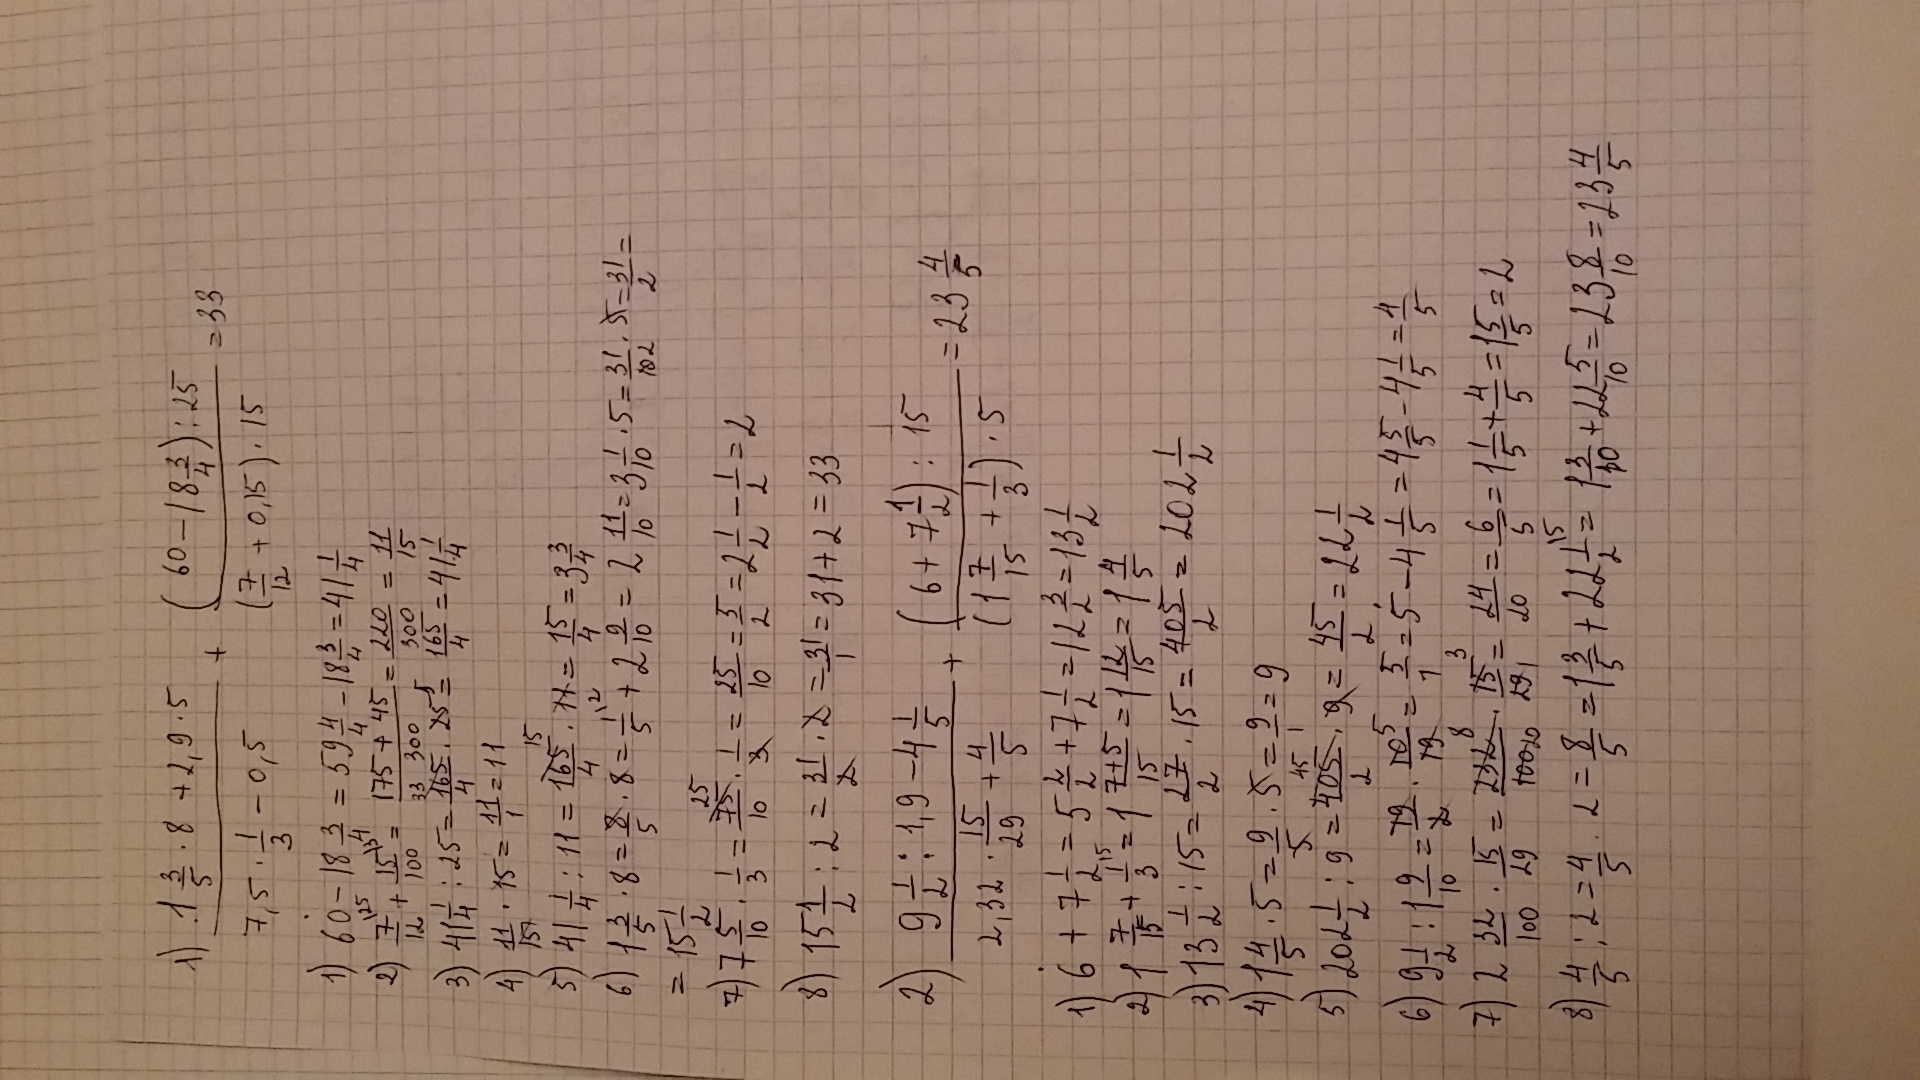 1) : 1 3/5 · 8 + 2,9 · 5 / 7,5 · 1/3 - 0,5 + (60 - 18 3/4) : 25 / (7/12 + 0,15) · 15 = 33
1) 60 - 18 3/4 = 59 4/4 - 18 3/4 = 41 1/4
2) 7/12 + 15/100 = 175 + 45/300 = 220/300 = 11/15
3) 41 1/4 : 25 = 165/4 · 25 = 165/4 = 41 1/4
4) 11/15 · 15 = 11/1 = 11
5) 41 1/4 : 11 = 165/4 · 11 = 15/4 = 3 3/4
6) 1 3/5 · 8 = 8/5 · 8 = 1/5 + 2 9/10 = 2 11/10 = 3 1/10 · 5 = 31/10 · 5 = 31/2 =
= 15 1/2
7) 7 5/10 · 1/3 = 75/10 · 1/3 = 25/10 = 5/2 = 2 1/2 - 1/2 = 2
8) 15 1/2 : 2 = 31/2 · 2 = 31/1 = 31 + 2 = 33
2) 9 1/2 : 1,9 - 4 1/5 / 2,32 · 15/29 + 4/5 + (6 + 7 1/2) : 15 / (1 7/15 + 1/3) · 5 = 23 4/5
1) 6 + 7 1/2 = 5 2/2 + 7 1/2 = 12 3/2 = 13 1/2
2) 1 7/15 + 1/3 = 1 7+5/15 = 1 12/15 = 1 4/5
3) 13 1/2 : 15 = 27/2 · 15 = 405/2 = 202 1/2
4) 1 4/5 · 5 = 9/5 · 5 = 9/1 = 9
5) 202 1/2 : 9 = 405/2 · 9 = 45/2 = 22 1/2
6) 9 1/2 : 1 9/10 = 19/2 · 10/19 = 5/1 = 5 - 4 1/5 = 4 5/5 - 4 1/5 = 4/5
7) 2 32/100 · 15/29 = 232/100 · 15/29 = 24/20 = 6/5 = 1 1/5 + 4/5 = 1 5/5 = 2
8) 4/5 : 2 = 4/5 · 2 = 8/5 = 1 3/5 + 22 1/2 = 1 3/10 + 22 5/10 = 23 8/10 = 23 4/5